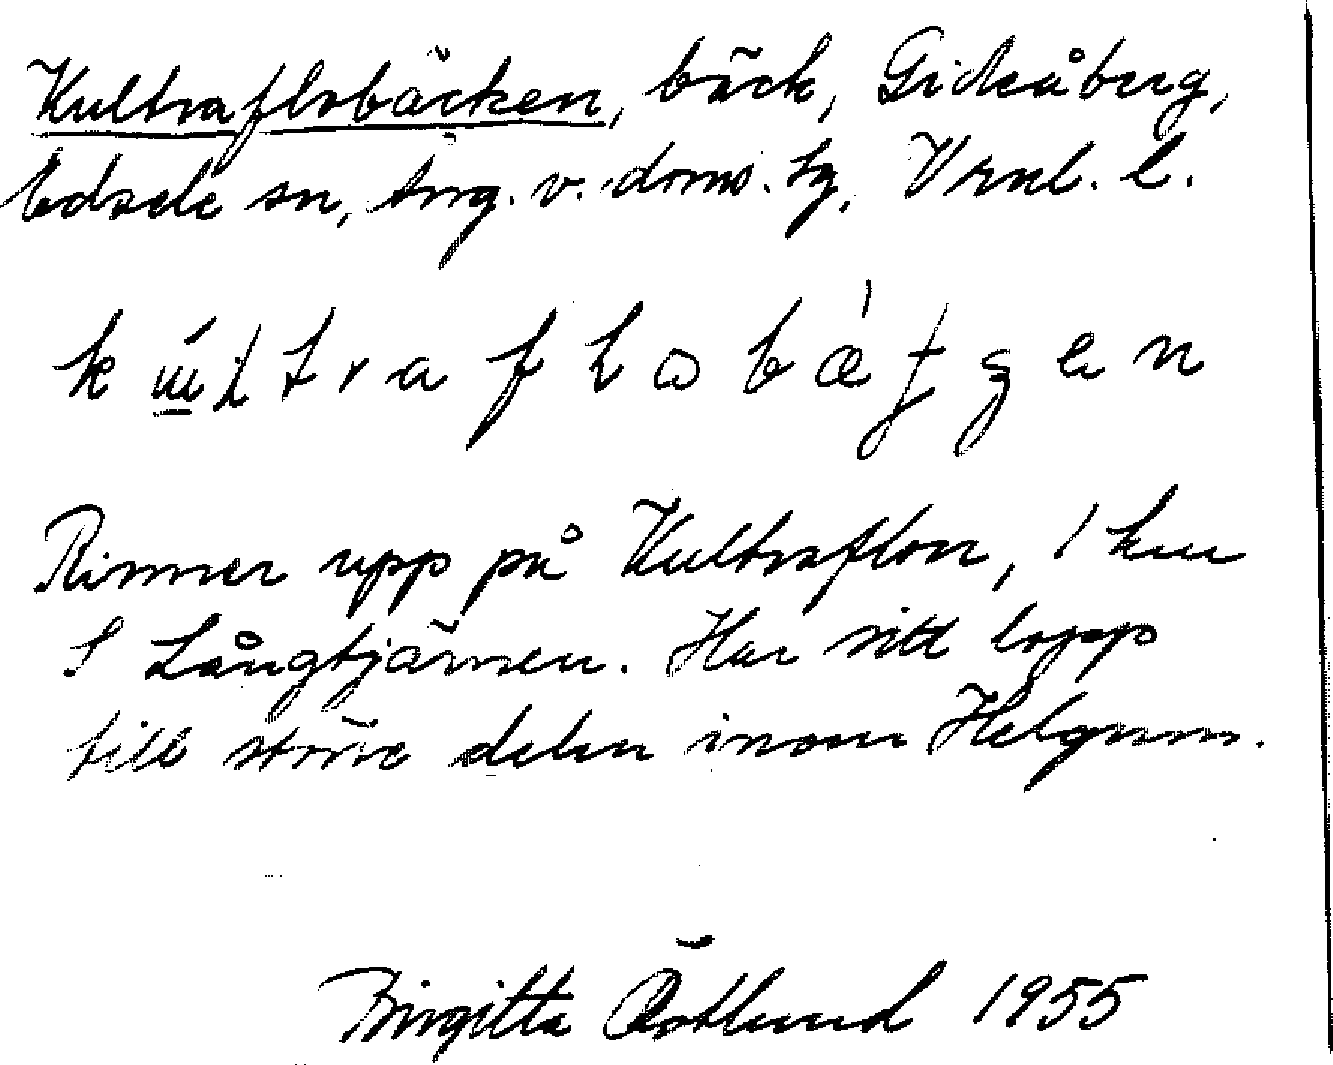 Kultraflobäcken, bäck, Gideåberg,
Edsele sn, Ång. v. doms. tg, Vrnl. l.
Rinner upp på Kultraflon, 1 km
S Långtjärnen. Har sitt lopp
till större delen inom Helgum.
Birgitta Östlund 1955